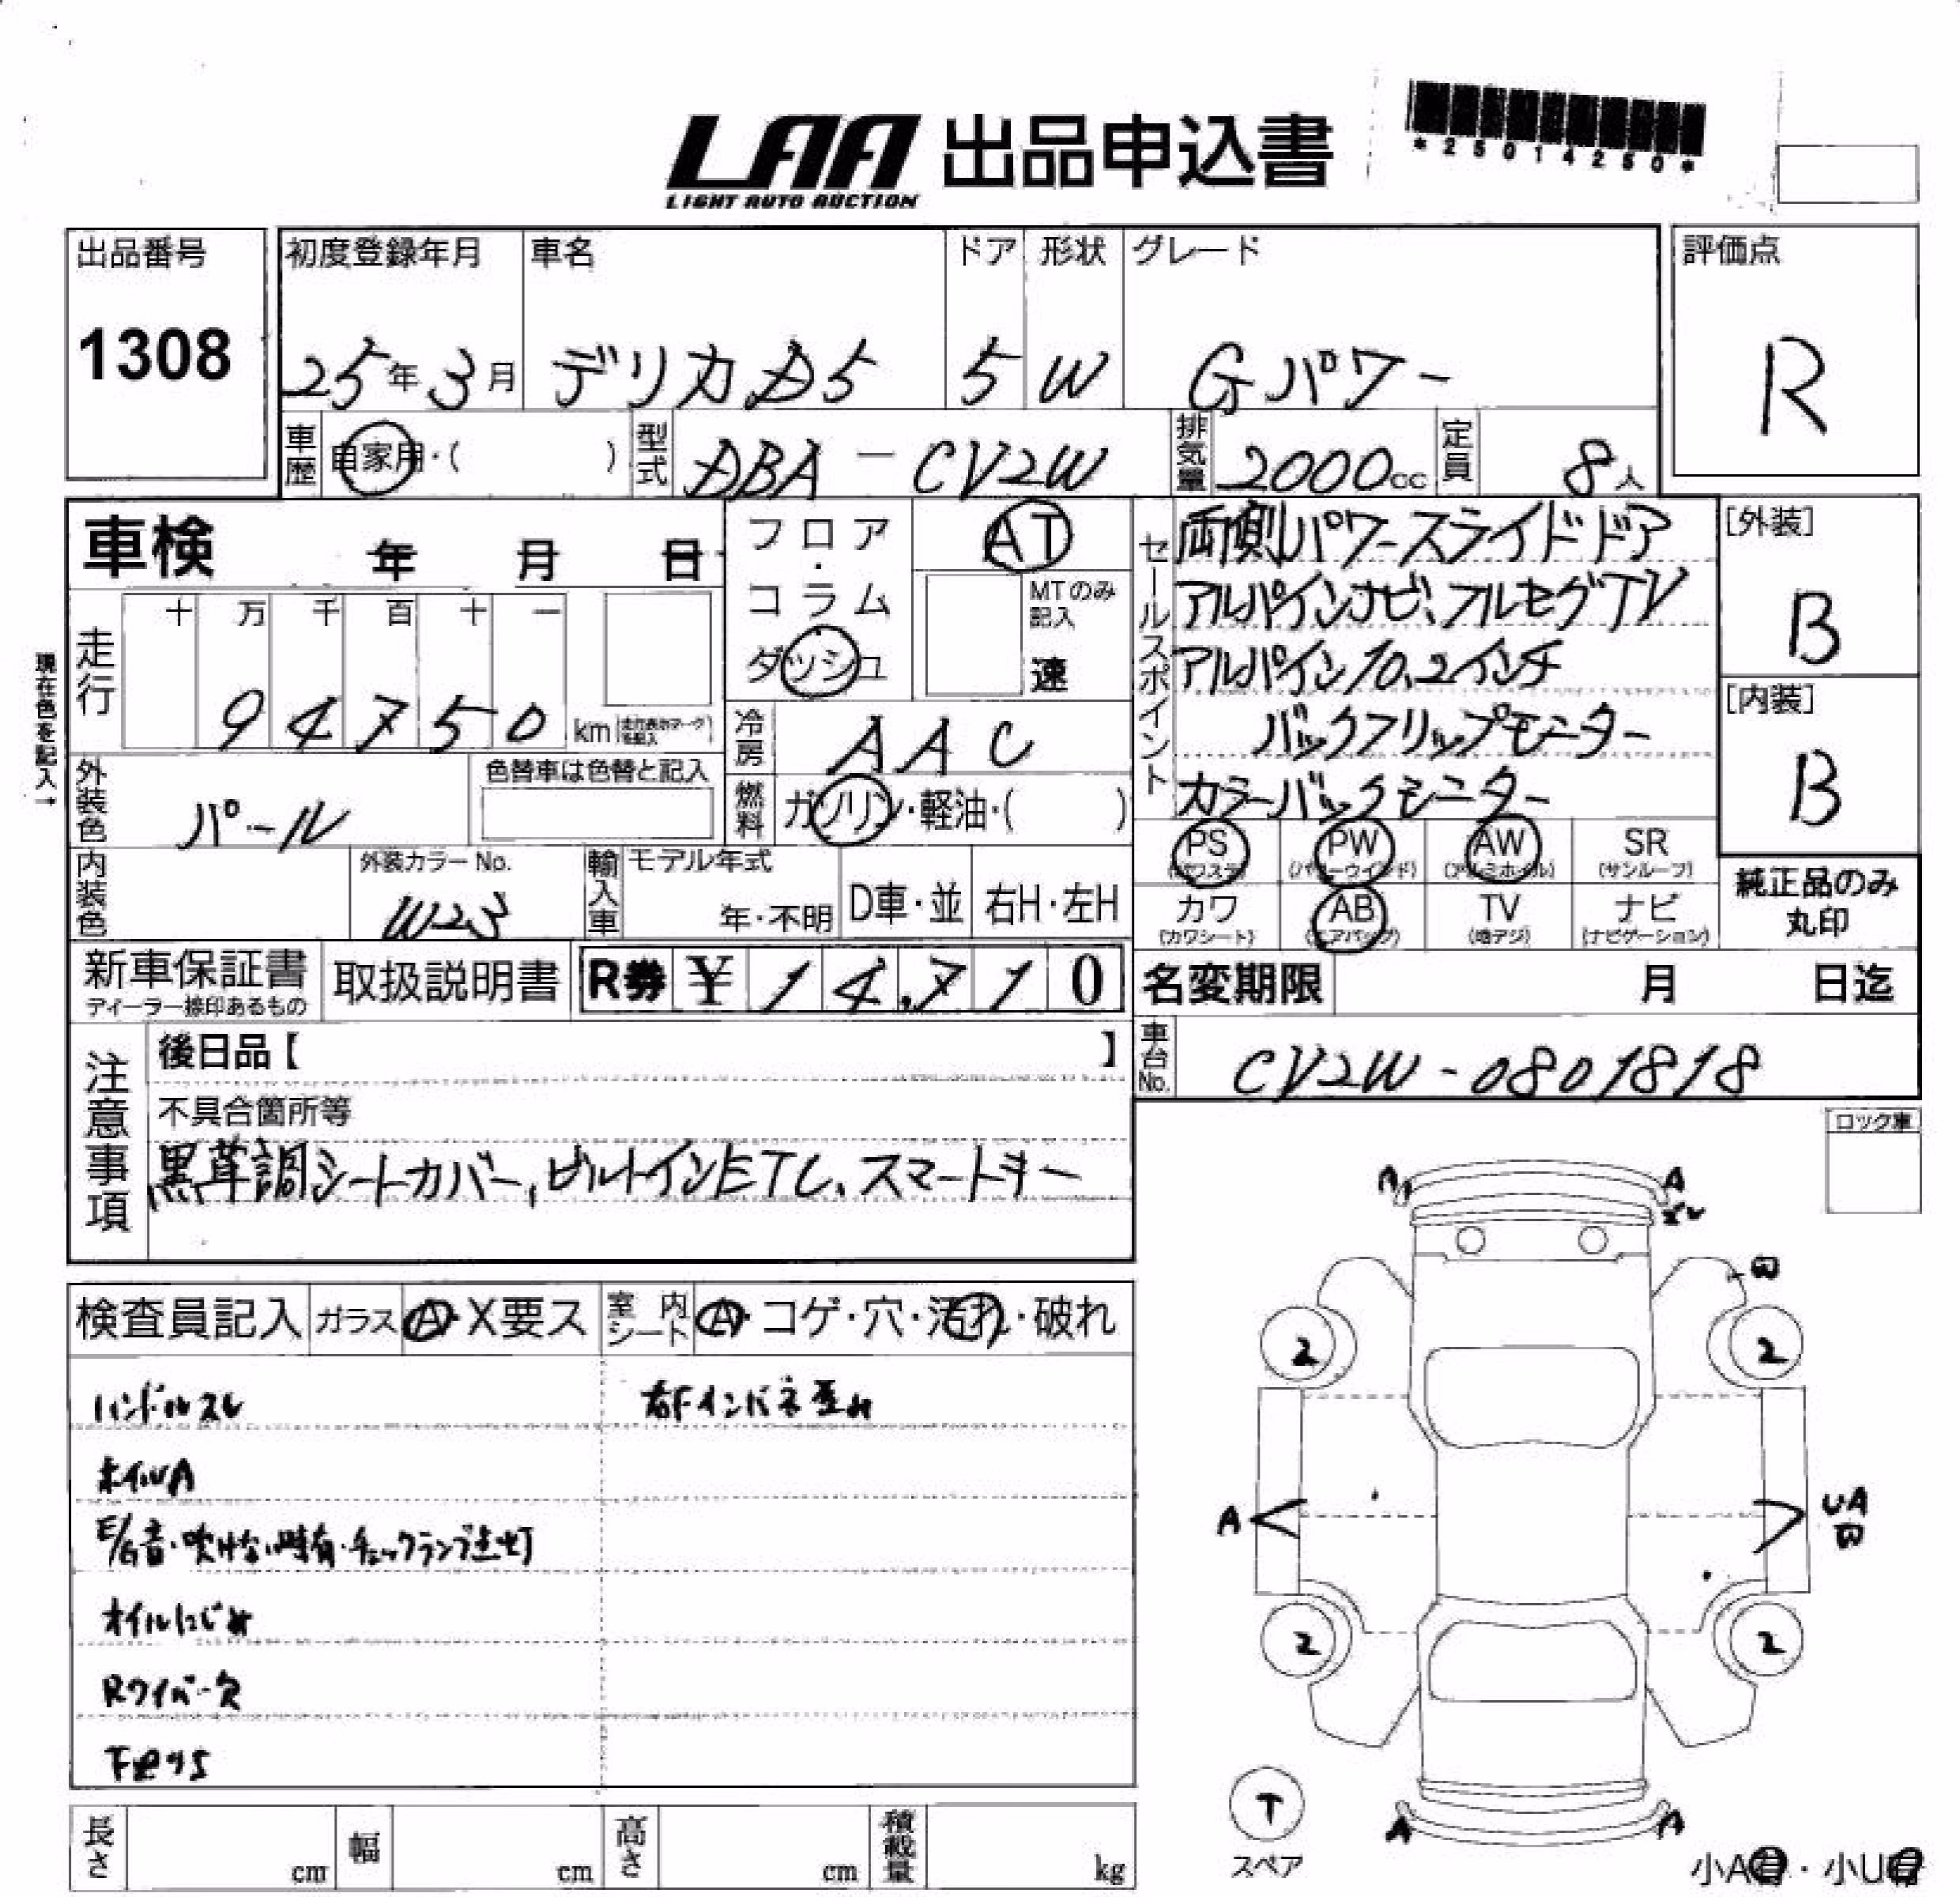 LAA 出品申込書
LIGHT AUTO AUCTION
*25014250*
出品番号
1308
初度登録年月
25年3月
車名
デリカD5
ドア
5
形状
W
グレード
Gパワー
評価点
R
車歴
自家用・( )
型式
DBA-CV2W
排気量
2000cc
定員
8人
車検 年 月 日
フロア・コラム
ダッシュ
AT
MTのみ記入
速
セールスポイント
両側パワースライドドア
アルパインナビ、フルセグTV
アルパイン10.2インチ
バックフリップモニター
カラーバックモニター
[外装]
B
[内装]
B
現在色を記入→
走行
十 万 千 百 十 一
9 4 7 5 0 km
冷房
AAC
外装色
パール
色替車は色替と記入
燃料
ガソリン・軽油・( )
PS
PW
(パワーウインド)
AW
(アルミホイル)
SR
(サンルーフ)
カワ
(カワシート)
AB
(エアバック)
TV
(地デジ)
ナビ
(ナビゲーション)
純正品のみ
丸印
内装色
外装カラーNo.
W23
輸入車
モデル年式
年・不明
D車・並
右H・左H
新車保証書
ディーラー捺印あるもの
取扱説明書
R券 ¥ 14,710
名変期限 月 日迄
車台No.
CV2W-0801818
注意事項
後日品【 】
不具合箇所等
黒革調シートカバー、ビルトインETC、スマートキー
ロック車
検査員記入
ガラス
A・X要ス
室内シート
A・コゲ・穴・汚れ・破れ
ハンドルスレ
右Fインパネ歪み
ホイルA
E/G音・吹けない時有・チェックランプ点灯
オイルにじみ
Rワイパー欠
A
A
2
2
A
UA
2
2
T
スペア
A
A
小A有・小U有
長さ cm
幅 cm
高さ cm
積載量 kg